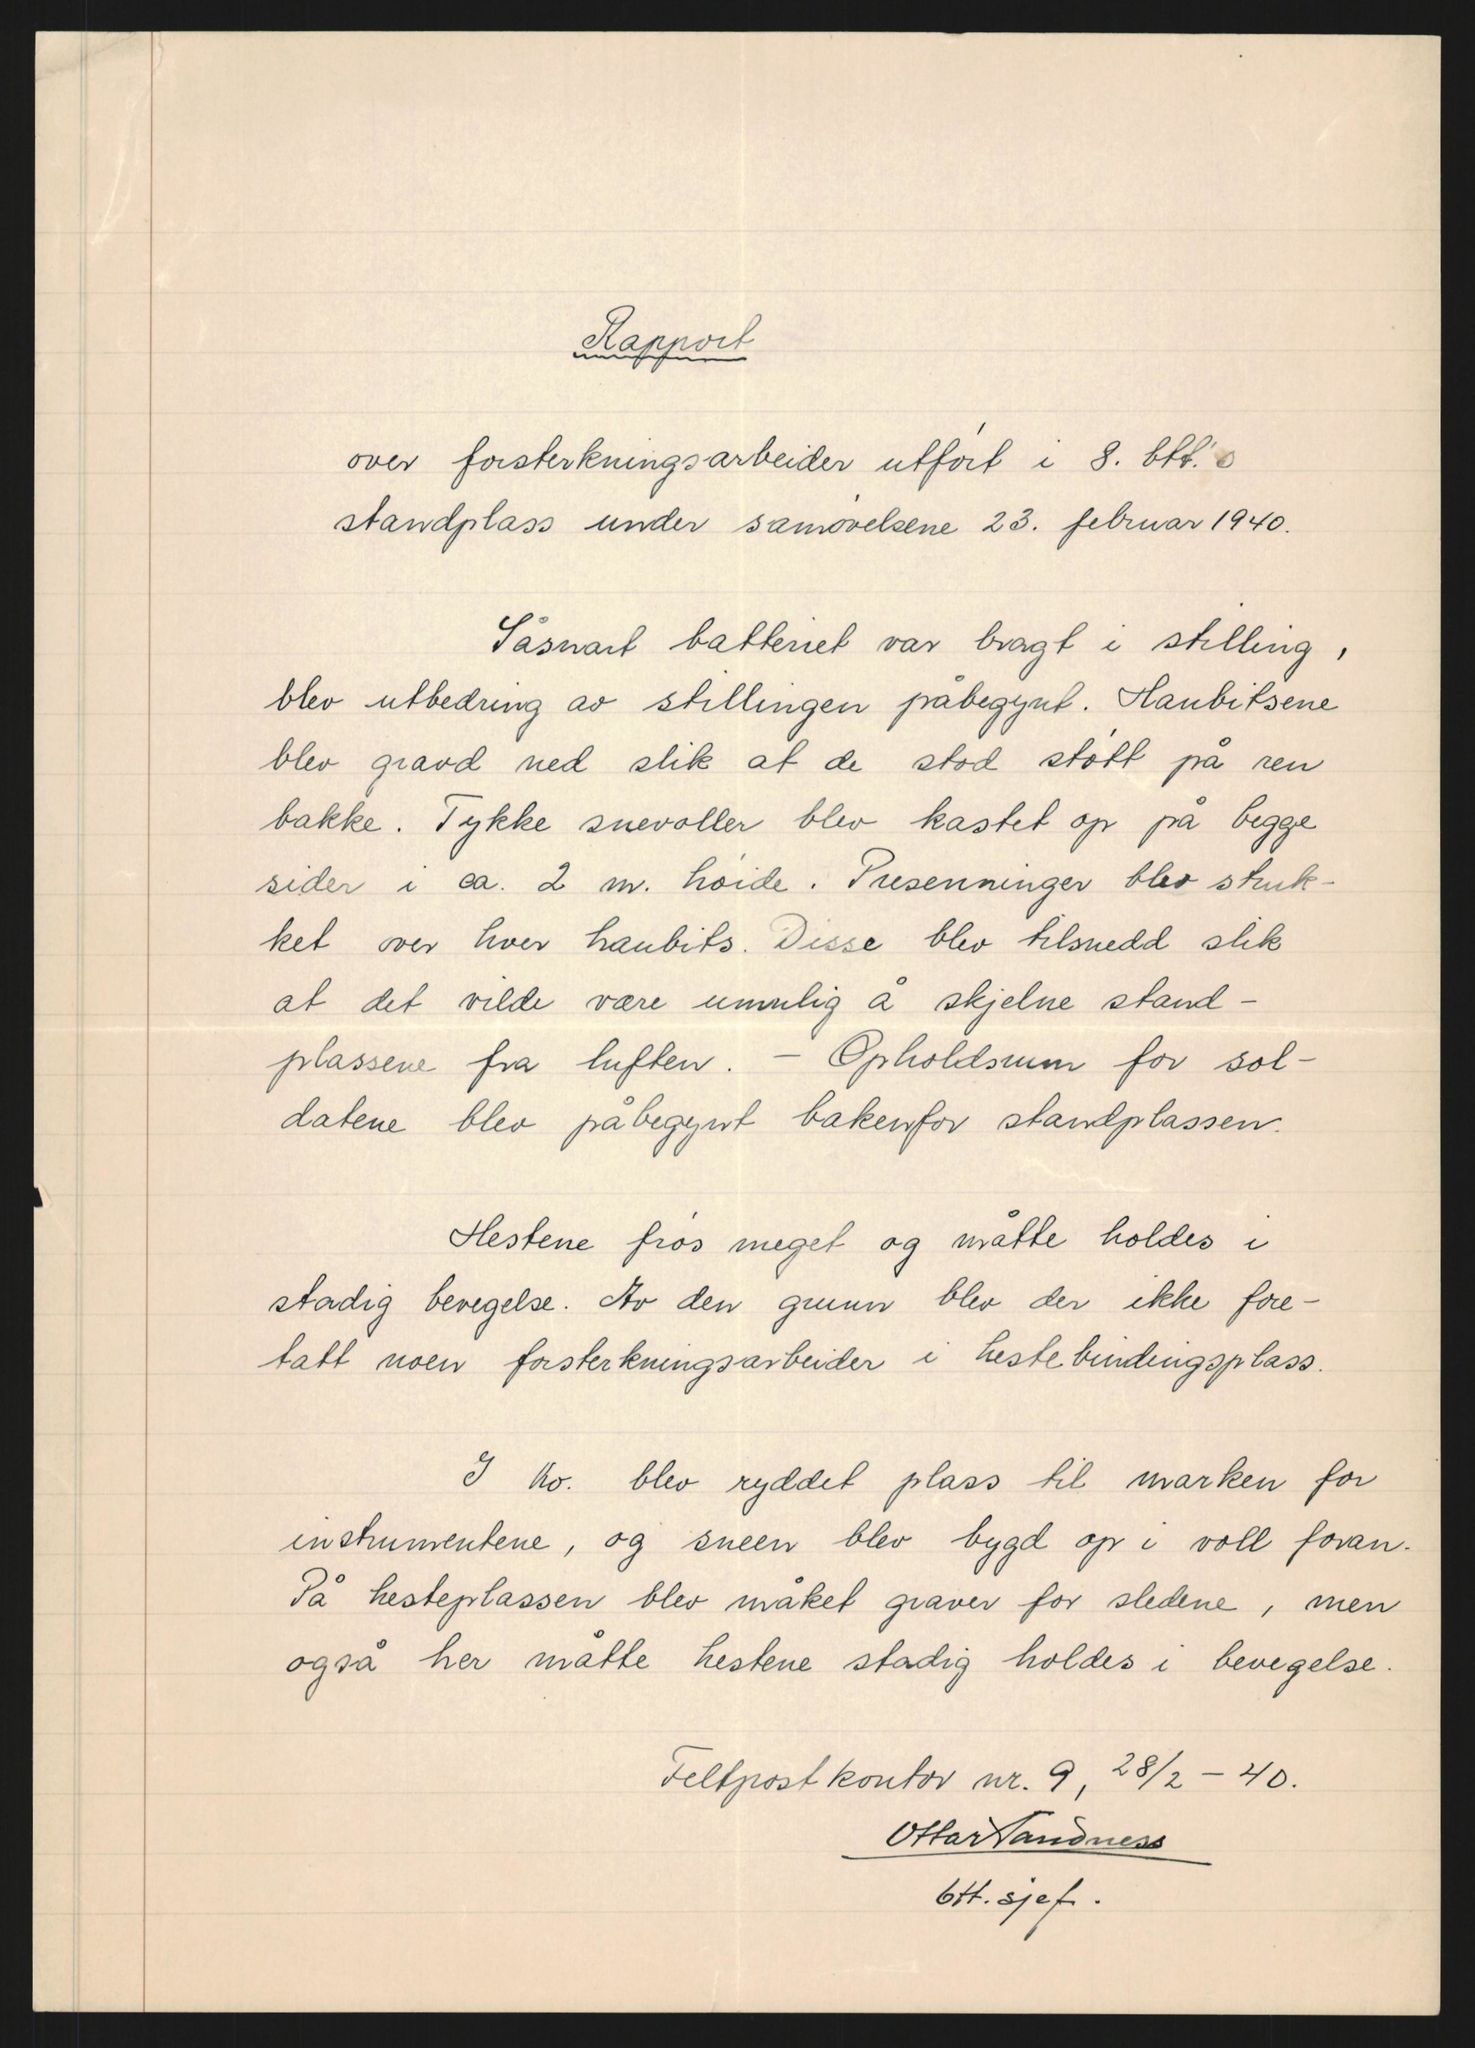 Rapport
over forsterkningsarbeider utført i 8. btt.s
standplass under samøvelsene 23. februar 1940.
Såsnart batteriet var bragt i stilling,
blev utbedring av stillingen påbegynt. Haubitsene
blev gravd ned slik at de stod støtt på ren
bakke. Tykke snevoller blev kastet op på begge
sider i ca. 2 m. høide. Presenninger blev struk-
ket over hver haubits. Disse blev tilsnedd slik
at det vilde være umulig å skjelne stand-
plassene fra luften. - Opholdsrum for sol-
datene blev påbegynt bakenfor standplassen.
Hestene frøs meget og måtte holdes i
stadig bevegelse. Av den grunn blev der ikke fore-
tatt noen forsterkningsarbeider i hestebindingsplass.
I Ko. blev ryddet plass til marken for
instrumentene, og sneen blev bygd op i voll foran.
På hesteplassen blev måket graver for sledene, men
også her måtte hestene stadig holdes i bevegelse.
Feltpostkontor nr. 9, 28/2 - 40.
Ottar Sandness
btt. sjef.